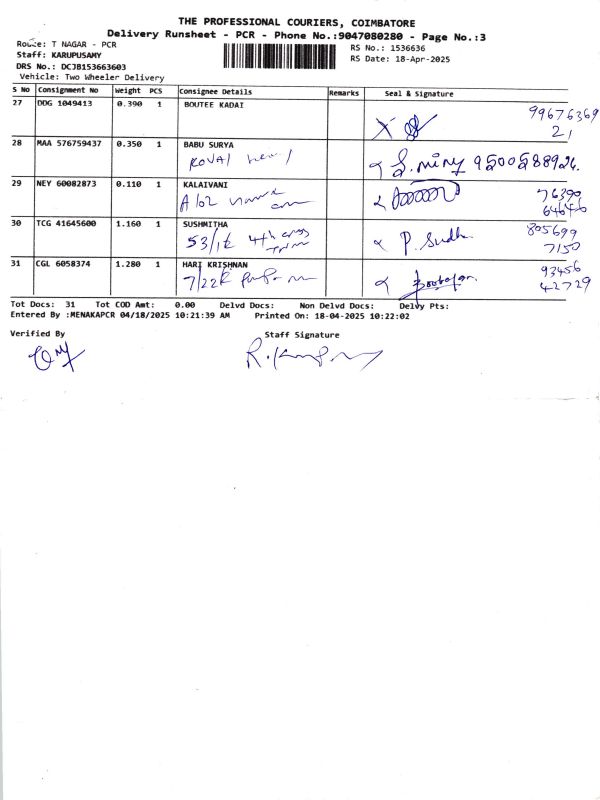 THE PROFESSIONAL COURIERS, COIMBATORE
Delivery Runsheet - PCR - Phone No.:9047080280 - Page No.:3
Route: T NAGAR - PCR
RS No.: 1536636
Staff: KARUPUSAMY
RS Date: 18-Apr-2025
DRS No.: DCJB153663603
Vehicle: Two Wheeler Delivery
S No Consignment No Weight PCS Consignee Details Remarks Seal & Signature
27 DDG 1049413 0.390 1 BOUTEE KADAI
99676369
21
28 MAA 576759437 0.350 1 BABU SURYA
ROVAI
29 NEY 60082873 0.110 1 KALAIVANI
A 102
76390
64646
30 TCG 41645600 1.160 1 SUSHMITHA
53/12 4th cross
P. Sudh
805699
7150
31 CGL 6058374 1.280 1 HARI KRISHNAN
7/22
93456
42729
Tot Docs: 31 Tot COD Amt: 0.00 Delvd Docs: Non Delvd Docs: Delvy Pts:
Entered By :MENAKAPCR 04/18/2025 10:21:39 AM Printed On: 18-04-2025 10:22:02
Verified By Staff Signature